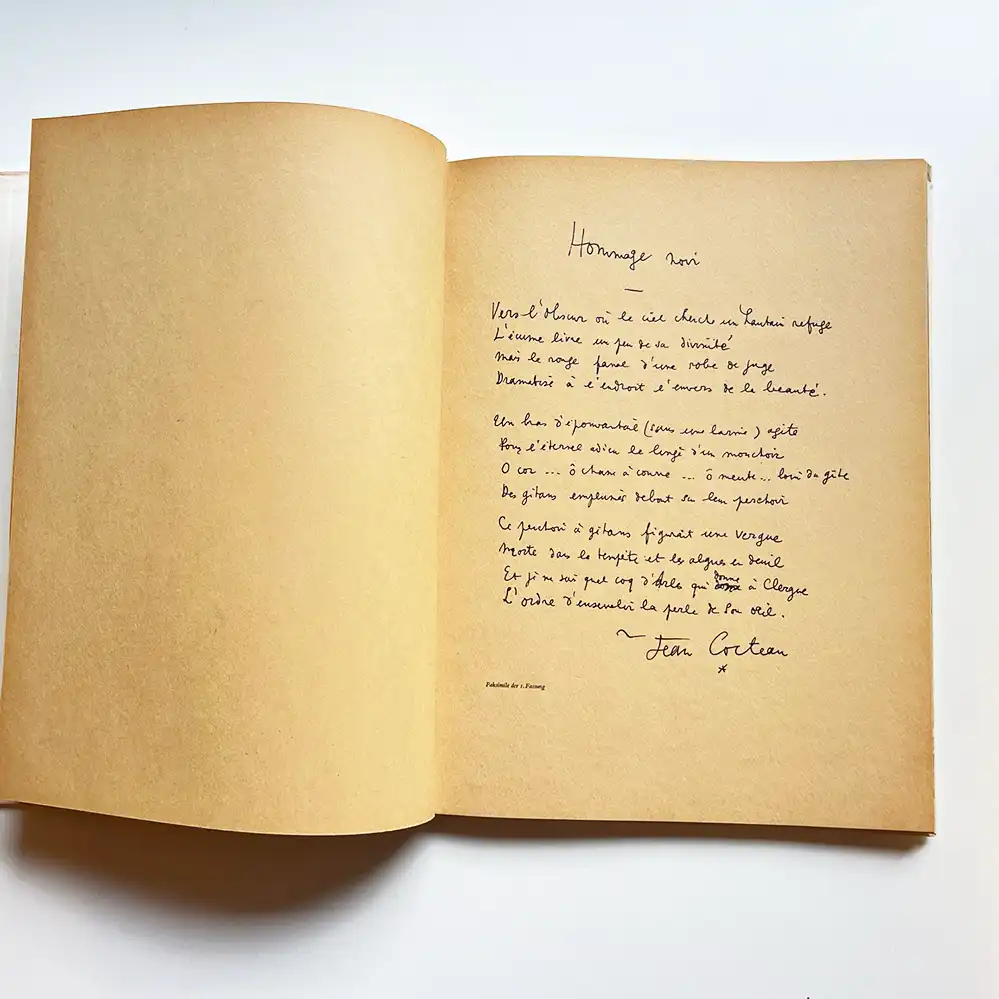 Hommage noir
—
Vers l'obscur où le ciel cherche un hautain refuge
L'écume livre un peu de sa divinité
Mais le rouge fanal d'une robe de juge
Dramatise à l'endroit l'envers de la beauté.
Un bras d'épouvantail (sans une larme) agite
Pour l'éternel adieu le linge d'un mouchoir
O cor ... ô chasse à courre ... ô meute ... loin du gîte
Des gitans emplumés debout sur leur perchoir
Ce perchoir à gitans figurait une vergue
Morte dans la tempête et les algues en deuil
Et je ne sais quel coq d'Arles qui donne à Clergue
L'ordre d'ensevelir la perle de son œil.
~ Jean Cocteau
*
Faksimile der 1. Fassung